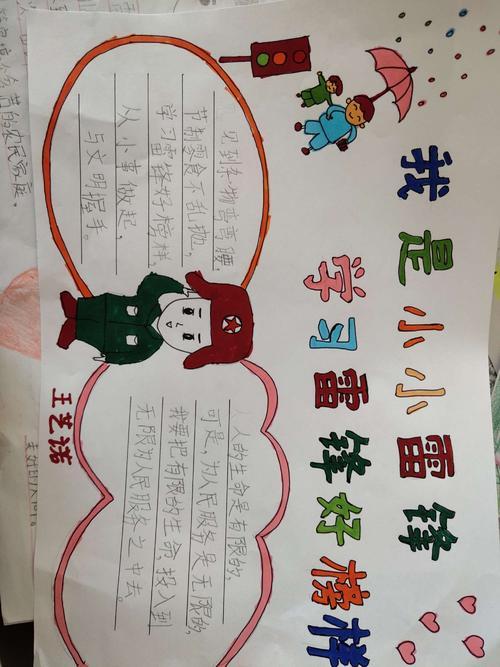 我是小小雷锋
学习雷锋好榜样
见到杂物弯弯腰,
节制零食不乱抛,
学习雷锋好榜样
从小事做起,
与文明握手。
人的生命是有限的,
可是,为人民服务是无限的,
我要把有限的生命投入到
无限为人民服务之中去。
王艺诺
的农民家庭。